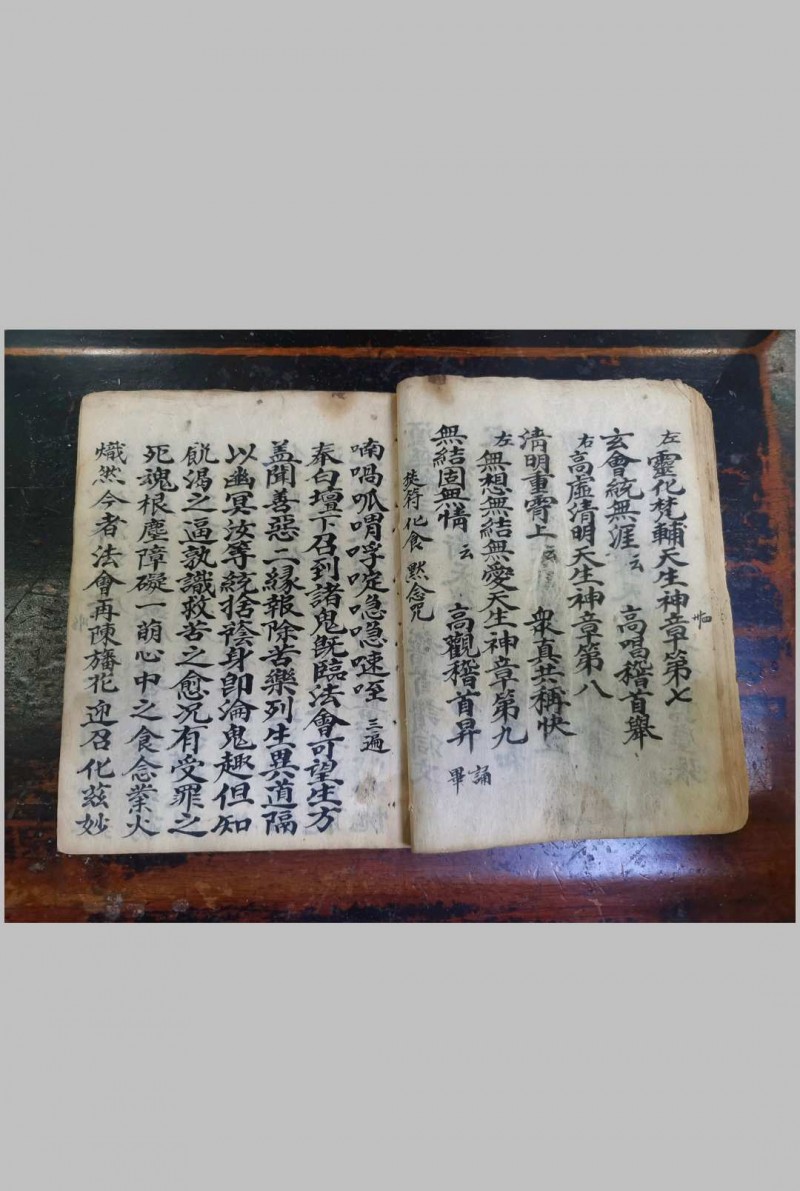 左 靈化梵輔天生神章第七
玄會統無涯 云 高唱稽首舉
右 高虛清明天生神章第八
清明重霄上 云 衆真共稱快
左 無想無結無愛天生神章第九
無結固無情 云 高觀稽首昇 誦畢
焚符化食 黙念咒
喃喎呱喟呼啶喼喼㖩咥 三遍
奉白壇下召到諸鬼旣臨法會可望生方
盖聞善惡二緣報除苦樂列生異道隔
以幽冥汝等統捨蔭身卽淪鬼趣但知
飢渴之逼孰識救苦之愈况有受罪之
死魂根塵障礙一萌心中之食念業火
熾然今者法會再陳旛花迎召化兹妙